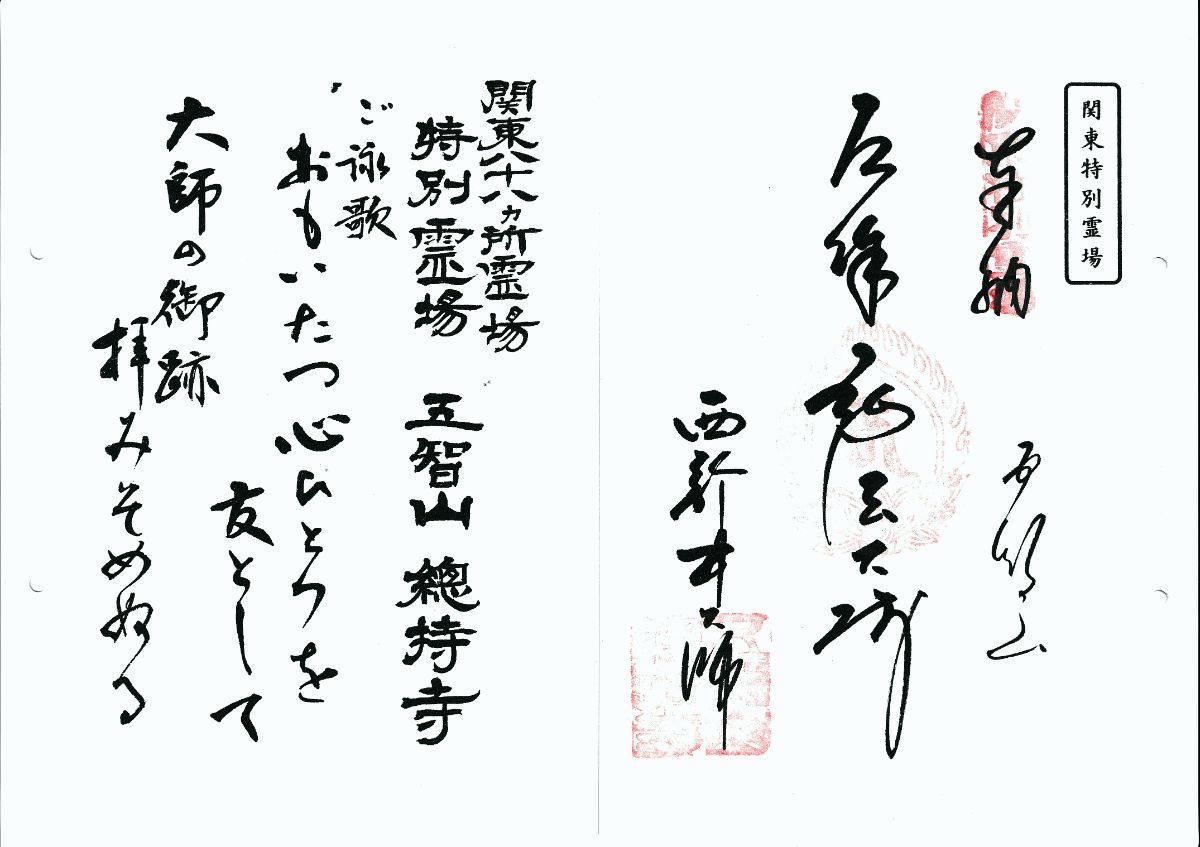 関東特別霊場
奉納
五智山
弘法大師
西新井大師
関東八十八ヵ所霊場
特別霊場 五智山 總持寺
ご詠歌
おもいたつ心ひとつを
友として
大師の御跡
拝みそめぬる